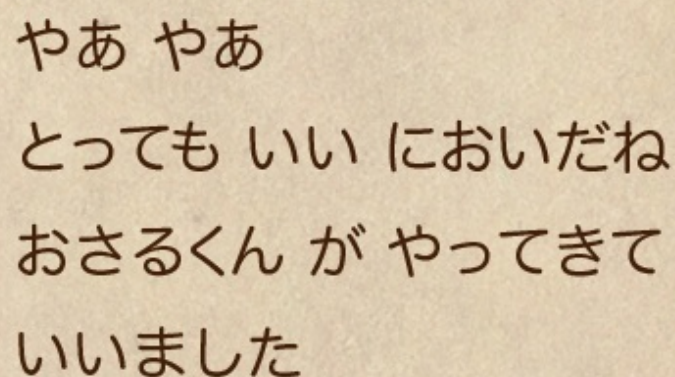 やあ やあ
とっても いい においだね
おさるくん が やってきて
いいました